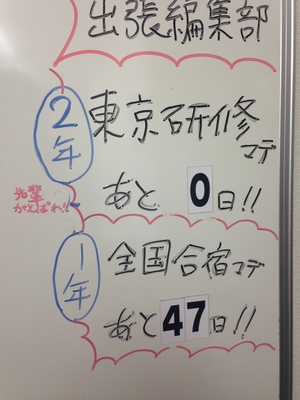 出張編集部
2年
東京研修マデ
あと 0日!!
先輩
がんばれ!!
1年
全国合宿マデ
あと 47日!!